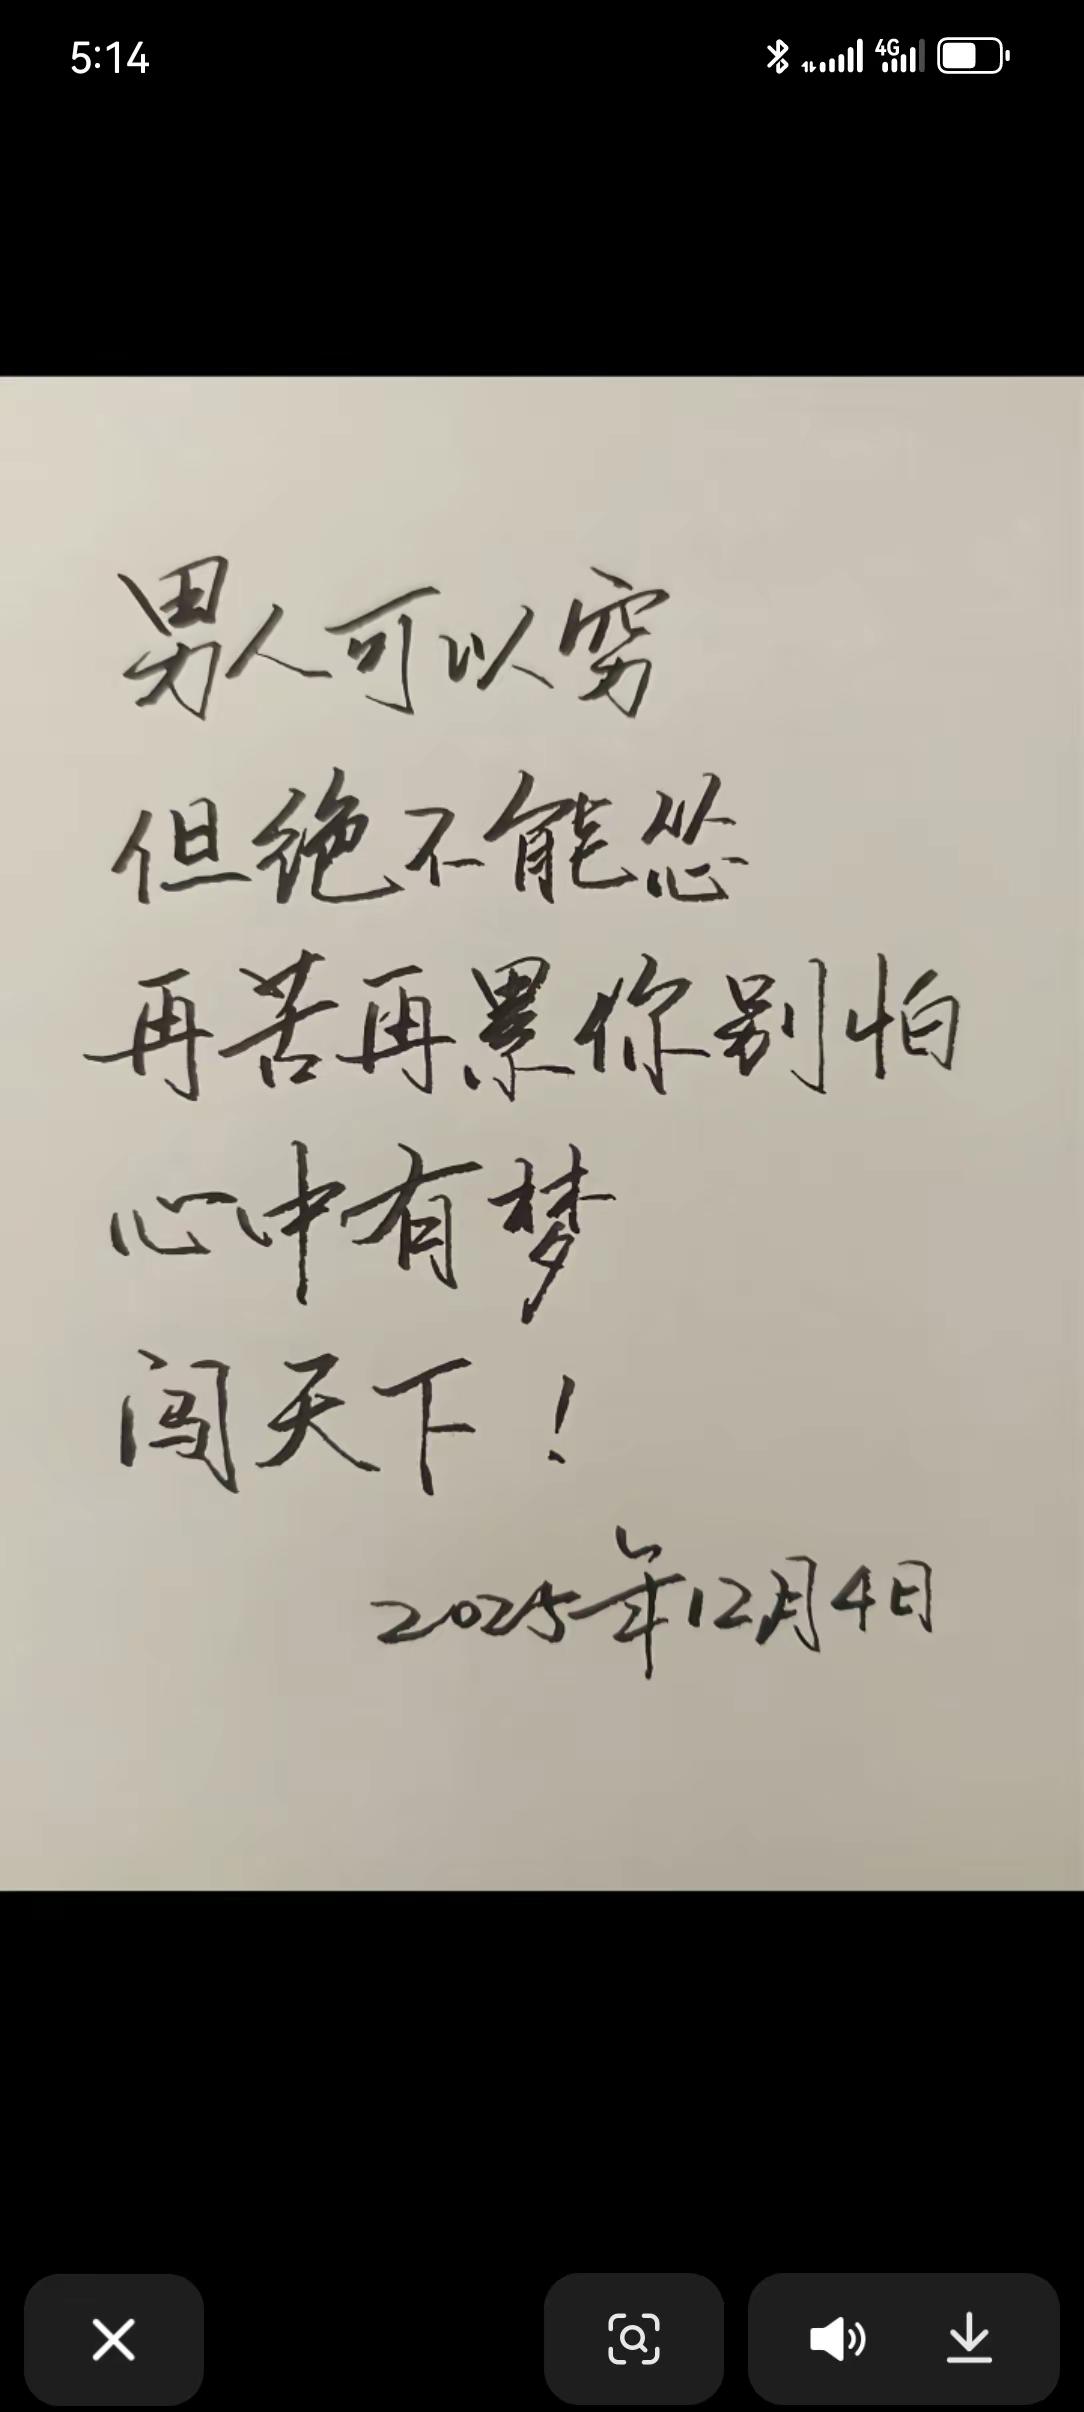 5:14
4G
男人可以穷
但绝不能怂
再苦再累你别怕
心中有梦
闯天下！
2025年12月4日